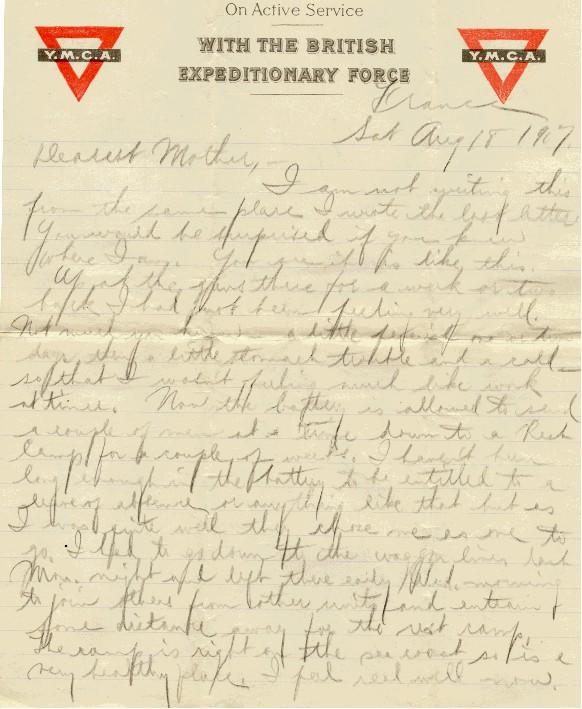 On Active Service
Y.M.C.A. Y.M.C.A.
WITH THE BRITISH
EXPEDITIONARY FORCE
France
Sat Aug 18 1917.
Dearest Mother, –
I am not writing this
from the same place I wrote the last letter.
You would be surprised if you knew
where I am. You see it is like this.
Up at the guns there for a week or two
back I had not been feeling very well.
Not much you know a little fever one or two
days then a little stomach trouble and a cold
so that I wasn't feeling much like work
at times. Now the battery is allowed to send
a couple of men at a time down to a Rest
Camp for a couple of weeks. I haven't been
long enough in the battery to be entitled to a
leave of absence or anything like that but as
I was quite well they chose me as one to
go. I had to go down to the waggon lines last
Mon. night and left there early Wed. morning
to join others from other units and entrain
some distance away for the rest camp.
The camp is right on the sea coast so is a
very healthy place. I feel real well now.